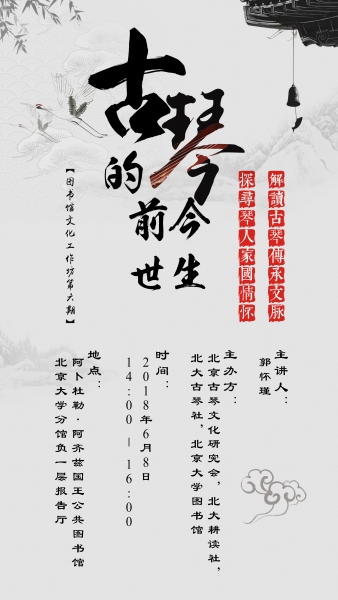 古琴
的前世
今生
解讀古琴傳承文脉
探尋琴人家國情怀
【图书馆文化工作坊第六期】
主讲人：
郭怀瑾
主办方：
北京古琴文化研究会，北大耕读社，
北大古琴社，北京大学图书馆
时间：
2018年6月8日
14:00－16:00
地点：
阿卜杜勒·阿齐兹国王公共图书馆
北京大学分馆负一层报告厅